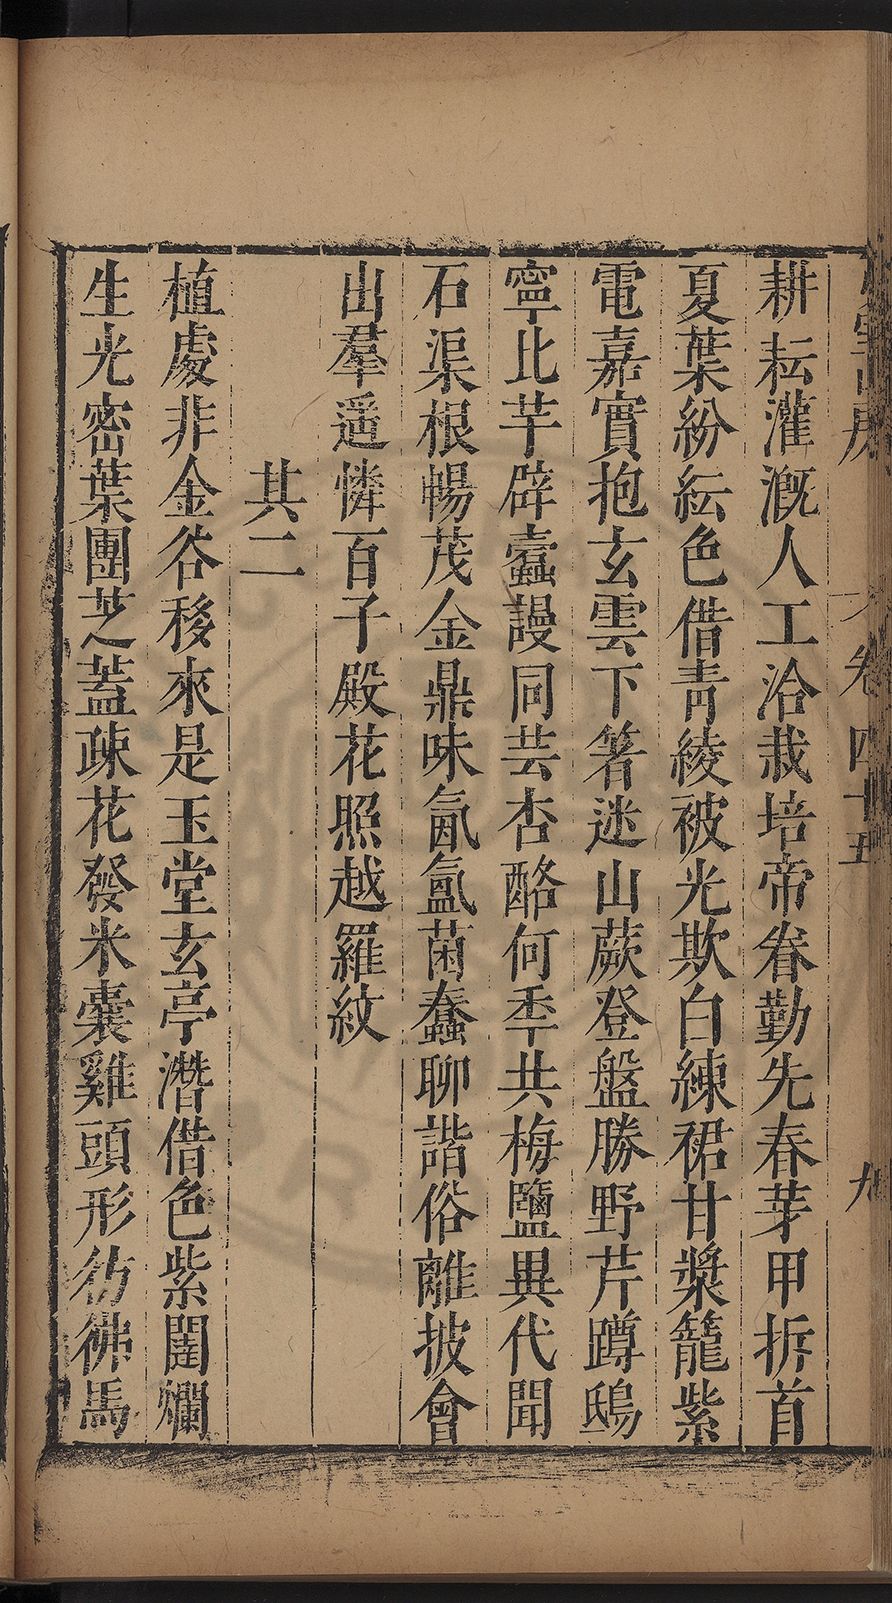 卷四十五
九
耕耘灌漑人工洽栽培帝眷勤先春芽甲拆首
夏葉紛紜色借青綾被光欺白練裙甘漿籠紫
電嘉實抱玄雲下箸迷山蕨登盤勝野芹蹲鴟
寧比芋辟蠹謾同芸杏酪何季共梅鹽異代聞
石渠根暢茂金鼎味氤氳菌蠢聊諧俗離披會
出羣遥憐百子殿花照越羅紋
其二
植處非金谷移來是玉堂玄亭潛借色紫闥爛
生光密葉團芝蓋疎花發米囊雞頭形彷彿馬